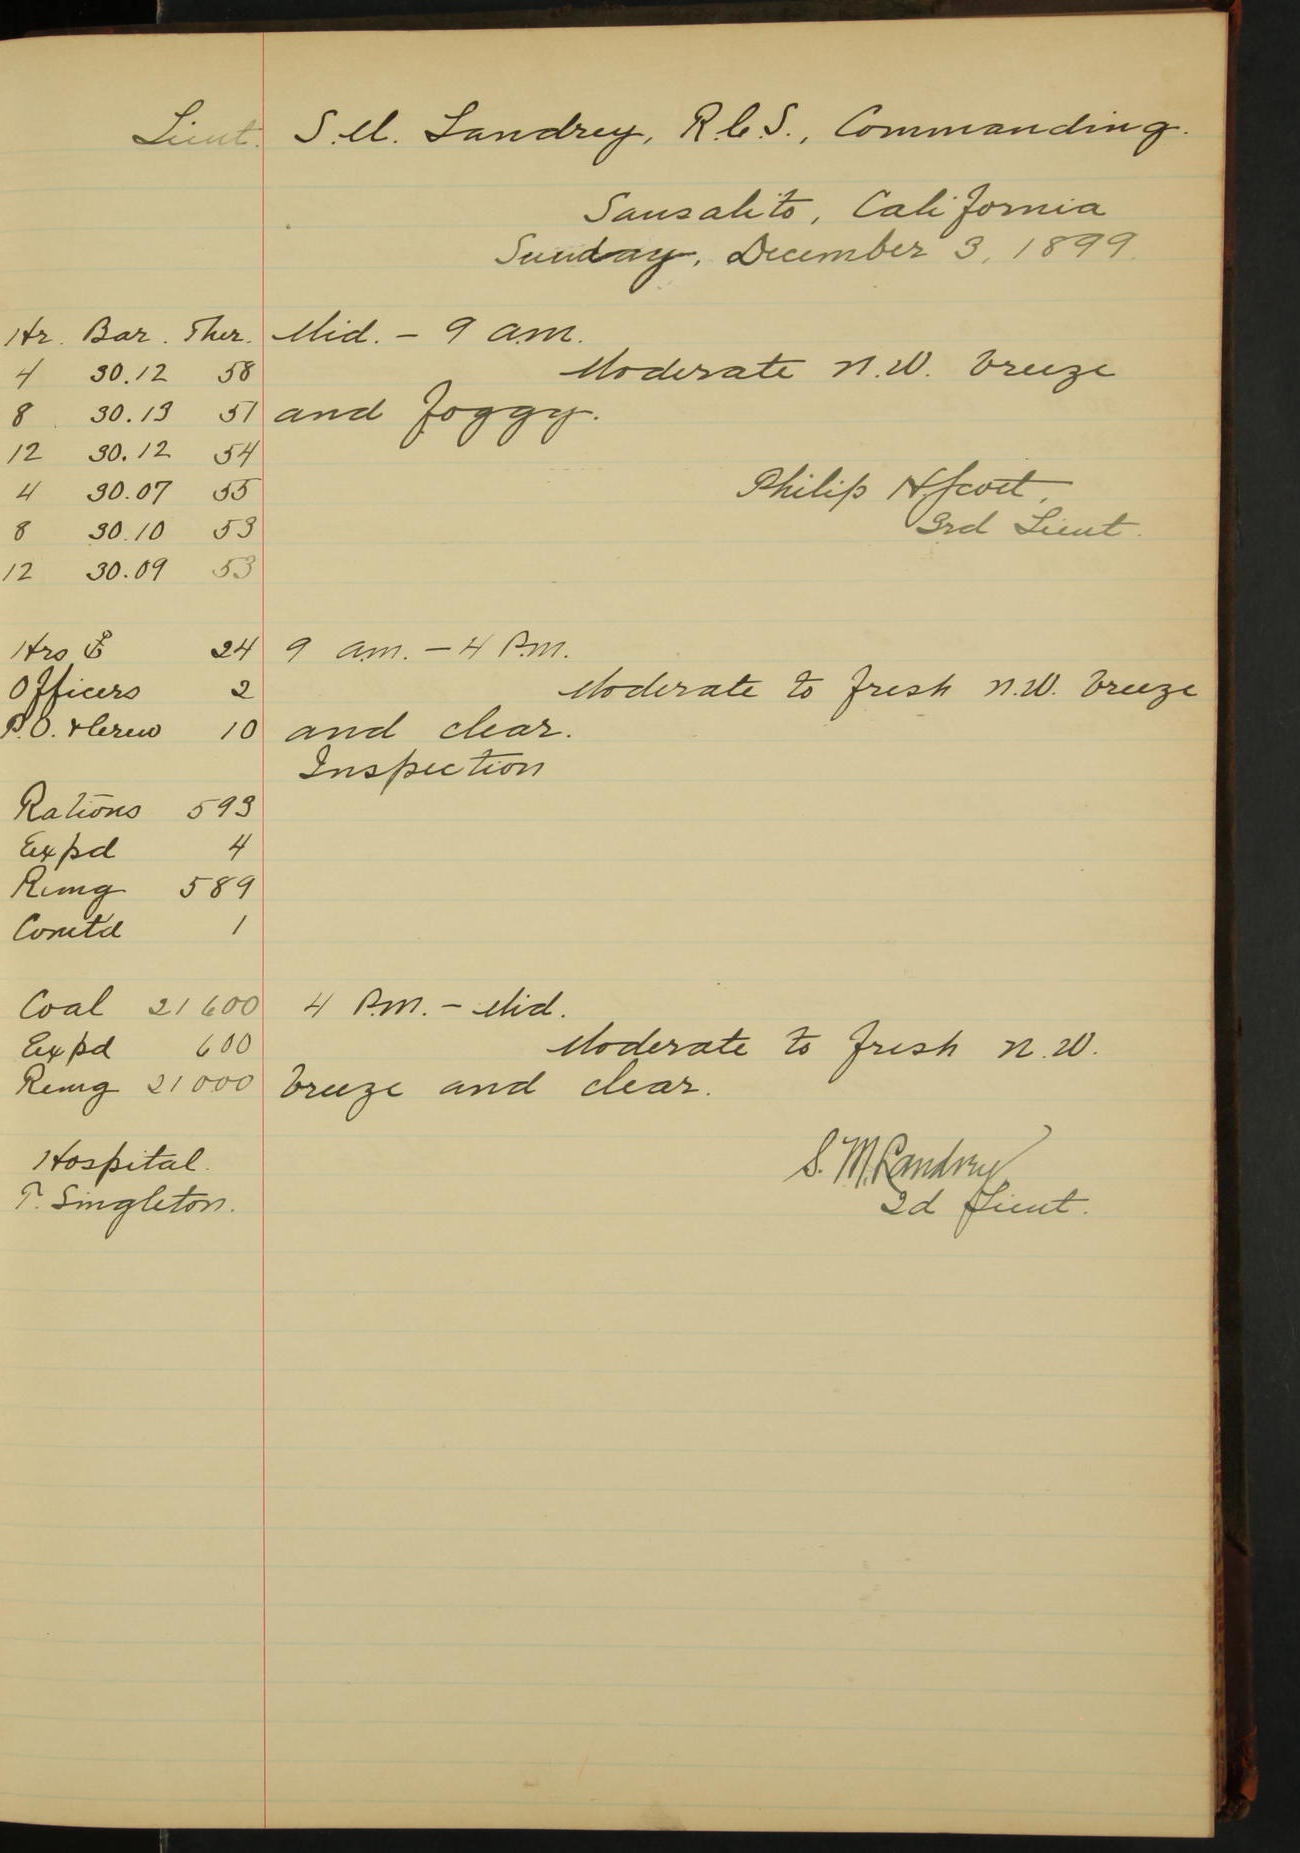 Lieut. S. M. Landrey, R.C.S., Commanding.
Sausalito, California
Sunday, December 3, 1899.
Hr. Bar. Ther. Mid. – 9 a.m.
4 30.12 58 Moderate N.W. breeze
8 30.13 51 and foggy.
12 30.12 54
4 30.07 55 Philip H. Scott,
8 30.10 53 3rd Lieut.
12 30.09 53
Hrs 24 9 a.m. – 4 P.M.
Officers 2 Moderate to fresh N.W. breeze
P.O. & Crew 10 and clear.
Inspection
Rations 593
Expd 4
Remg 589
Comtd 1
Coal 21600 4 P.M. – Mid.
Expd 600 Moderate to fresh N.W.
Remg 21000 breeze and clear.
Hospital. S. M. Landrey
T. Singleton. 2d Lieut.